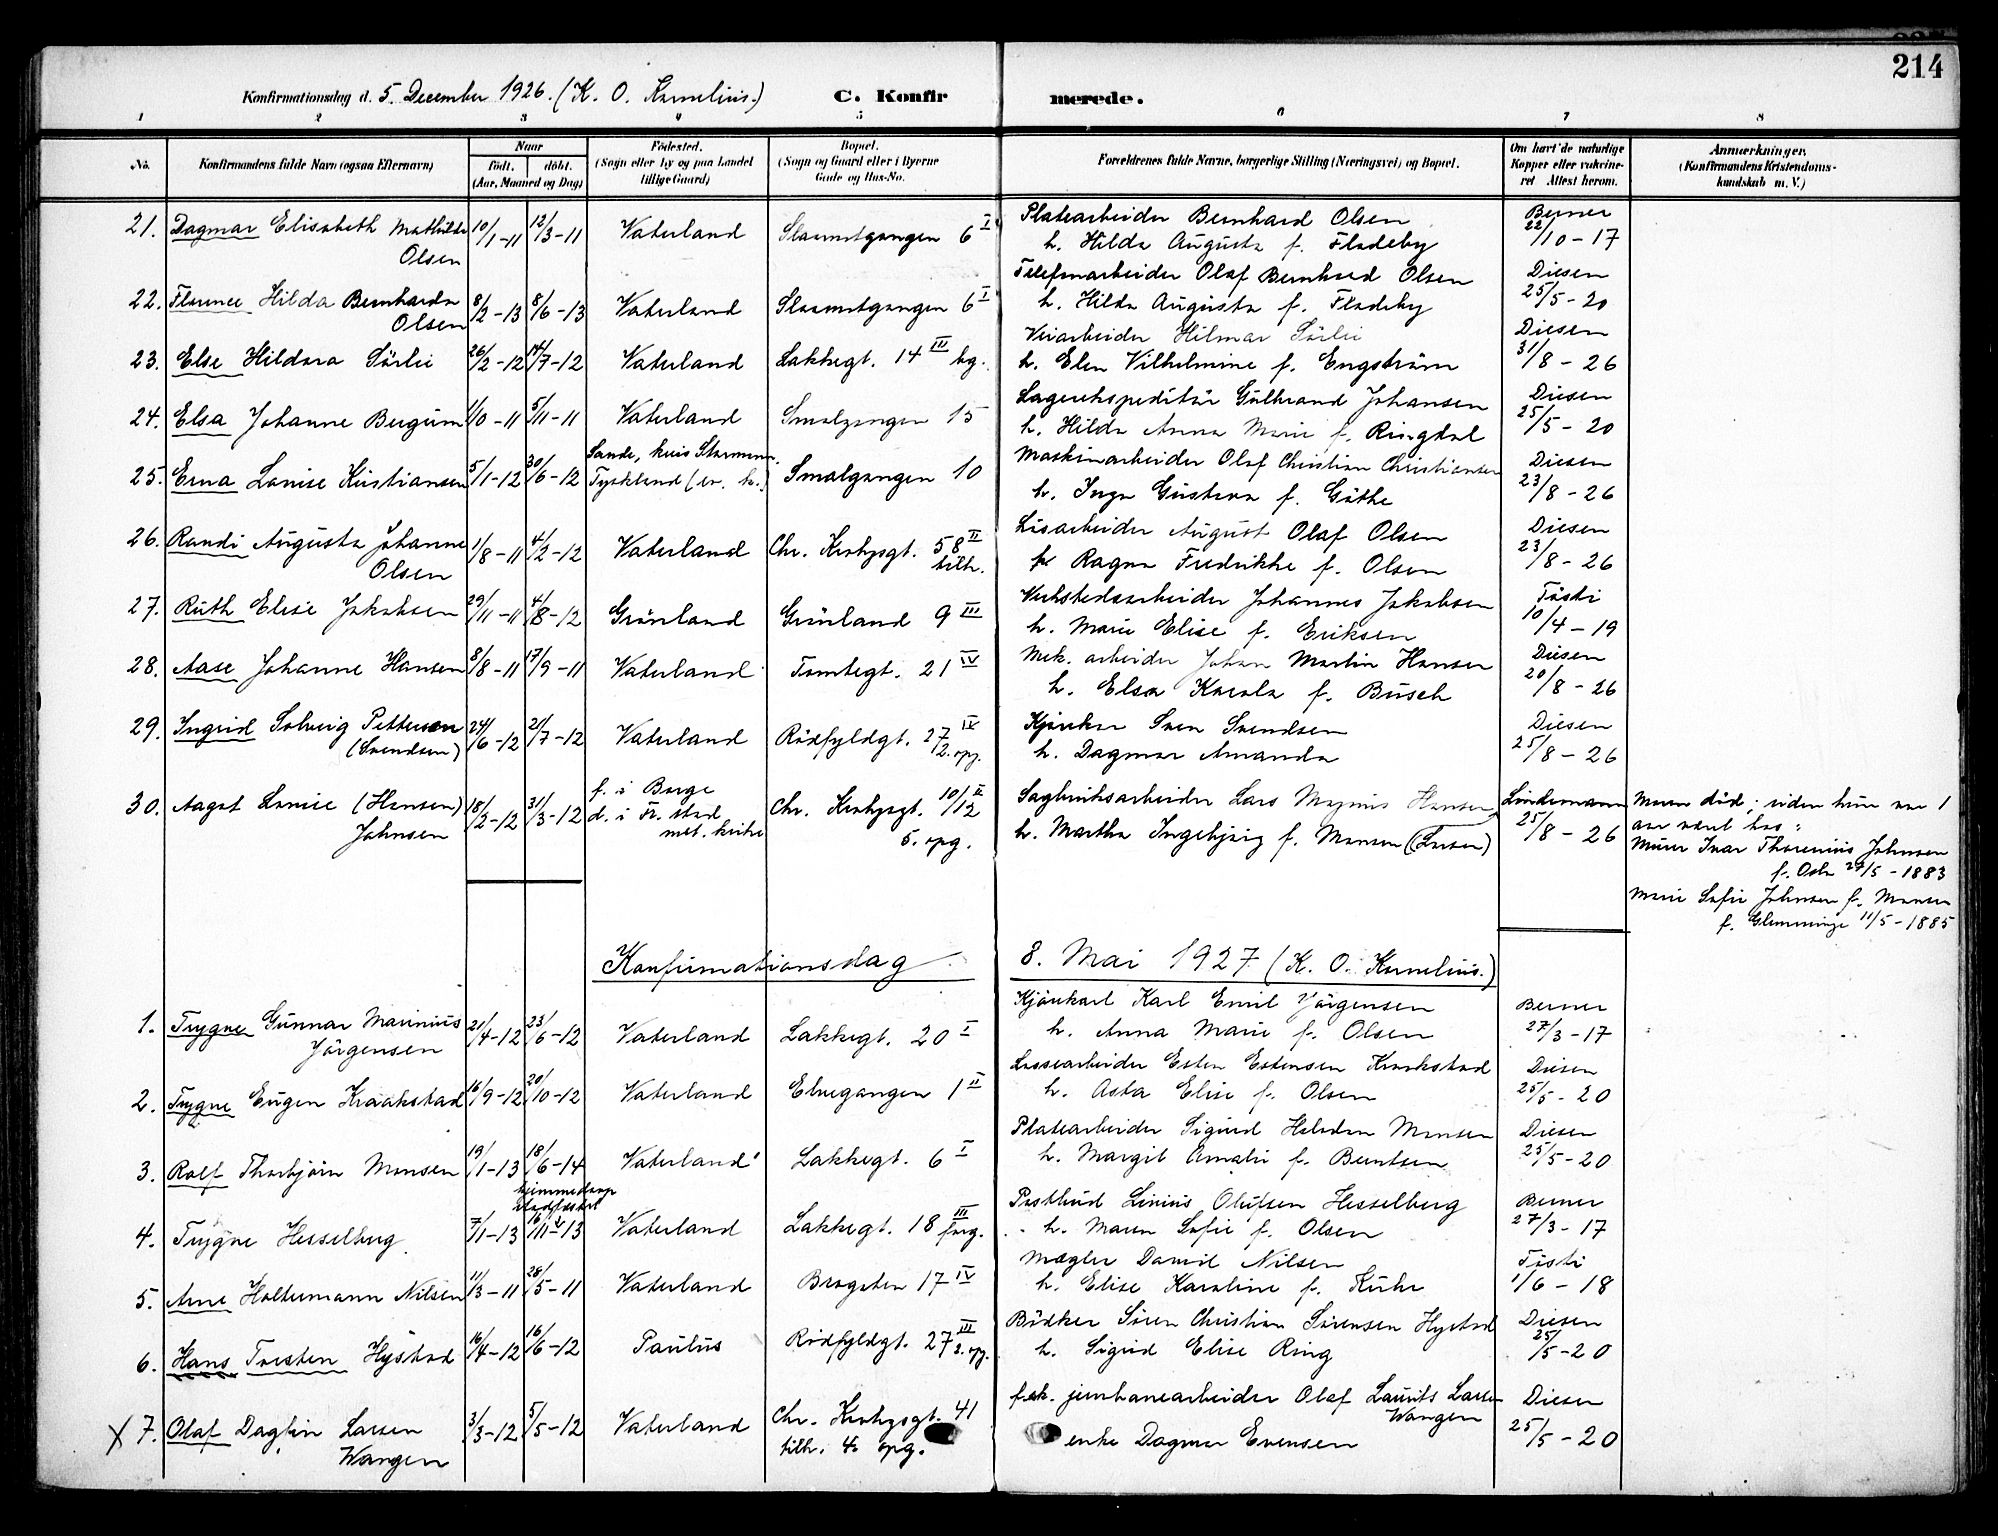 214
Konfirmationsdag d. 5. December 1926. (K. O. Kornelius.) C. Konfirmerede.
1 2 3 4 5 6 7 8
No. Konfirmandens fulde Navn (ogsaa Efternavn) Naar født. døbt. (Aar, Maaned og Dag) Fødested. (Sogn eller By og paa Landet tillige Gaard) Bopæl. (Sogn og Gaard eller i Byerne Gade og Hus-No. Forældrenes fulde Navne, borgerlige Stilling (Næringsvei) og Bopæl. Om havt de naturlige Kopper eller vakcineret Attest herom. Anmærkninger. (Konfirmandens Kristendomskundskab m. V.)
21. Dagmar Elisabeth Mathilde 10/1-11 12/3-11 Vaterland 6 I Platearbeider Bernhard Olsen Berner
Olsen h. Hilda Augusta f. Fladeby 22/10-17
22. Florence Hilda Bernharda 8/2-13 8/6-13 Vaterland 6 I Telefonarbeider Olaf Bernhard Olsen Diesen
Olsen h. Hilda Augusta f. Fladeby 25/5-20
23. Else Hildora Sörlie 26/2-12 14/7-12 Vaterland Lakkegt. 14 III bg. Veiarbeider Hilmar Sörlie Diesen
h. Elen Vilhelmine f. Engström 31/8-26
24. Elsa Johanne Bergum 1/10-11 5/11-11 Vaterland Smalgangen 15 Lagerekspeditör Gulbrand Johansen Diesen
h. Hilda Anna Marie f. Ringdal 25/5-20
25. Erna Louise Kristiansen 5/1-12 30/6-12 Sande, kreis Stormarn. Smalgangen 10 Maskinarbeider Olaf Christian Christiansen Diesen
Tyskland (ev. k.) h. Inga Gustava f. Göthe 23/8-26
26. Randi Augusta Johanne 1/8-11 4/2-12 Vaterland Chr. Krohgsgt. 58 II Lösarbeider August Olaf Olsen Diesen
Olsen tilh. h. Ragna Fredrikke f. Olsen 23/8-26
27. Ruth Elise Jakobsen 29/11-11 4/8-12 Grönland Grönland 9 III Verkstedsarbeider Johannes Jakobsen Tösti
h. Marie Elise f. Eriksen 10/4-19
28. Aase Johanne Hansen 8/8-11 17/9-11 Vaterland Tomtegt. 21 IV Mek. arbeider Johan Martin Hansen Diesen
h. Elsa Karola f. Busch 20/8-26
29. Ingrid Solveig Pettersen 24/6-12 21/7-12 Vaterland Rödfyldgt. 27 IV Sven Svendsen Diesen
(Svendsen) 2. opg. h. Dagmar Amanda 25/8-26
30. Aagot Louise (Hansen) 18/2-12 31/3-12 f. i Borge Chr. Krohgsgt. 10/12 II Sagbruksarbeider Lars Magnus Hansen Lindemann Moren död; siden hun var 1
Johnsen d. i Fr. stad 5. opg. h. Martha Ingebjørg f. Monsen (Larsen) 25/8-26 aar været hos:
met. kirke Murer Ivar Thorenius Johnsen
f. Oslo 27/5-1883
Marie Sofie Johnsen f. Monsen
f. Glemminge 11/5-1885
Konfirmationsdag 8. Mai 1927 (K. O. Kornelius.)
1. Trygve Gunnar Marinius 21/4-12 23/6-12 Vaterland Lakkegt. 20 I Kjörekarl Karl Emil Jörgensen Berner
Jörgensen h. Anna Marie f. Olsen 27/3-17
2. Trygve Eugen Kraakstad 16/9-12 20/10-12 Vaterland Elvegangen 1 II Lossearbeider Esten Estensen Kraakstad Diesen
h. Asta Elise f. Olsen 25/5-20
3. Rolf Thorbjörn Monsen 19/1-13 18/6-14 Vaterland Lakkegt. 6 I Platearbeider Sigurd Halvdan Monsen Diesen
hjemmedaap h. Margit Amalie f. Berntsen 25/5-20
stadfæstet
4. Trygve Hesselberg 7/1-13 16/11-13 Vaterland Lakkegt. 18 III Postbud Linius Olufsen Hesselberg Berner
forg. h. Maren Sofie f. Olsen 27/3-17
5. Arne Holtermann Nilsen 11/3-11 28/5-11 Vaterland Brogaten 17 IV Mægler David Nilsen Tösti
h. Elise Karoline f. 1/6-18
6. Hans Torsten Hystad 16/4-12 16/6-12 Paulus Rödfyldgt. 27 III Bödker Sören Christian Sörensen Hystad Diesen
2. opg. h. Sigrid Elise Ring 25/5-20
X 7. Olaf Dagfin Larsen 3/3-12 5/5-12 Vaterland Chr. Krohgsgt. 41 f.sk. jernbanearbeider Olaf Laurits Larsen Diesen
Wangen tilh. 4. opg. Wangen
enke Dagmar Evensen 25/5-20